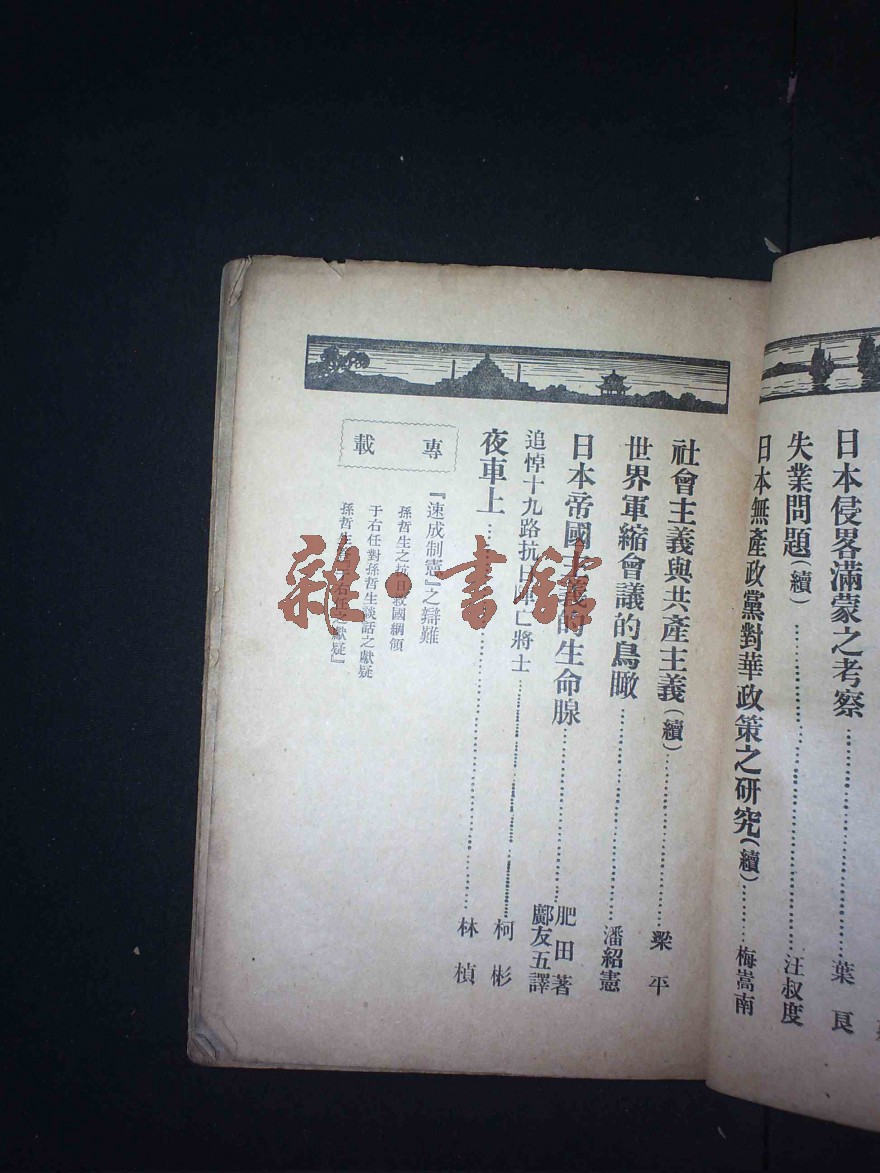 日本侵畧滿蒙之考察…………葉良
失業問題(續)…………汪叔度
日本無產政黨對華政策之研究(續)…………梅嵩南
社會主義與共產主義(續)…………梁平
世界軍縮會議的鳥瞰…………潘紹憲
日本帝國主義的生命腺…………肥田著
鄺友五譯
追悼十九路抗日陣亡將士…………柯彬
夜車上…………林楨
專載
『速成制憲』之辯難
孫哲生之抗日救國綱領
于右任對孫哲生談話之獻疑
孫哲生答『于右任之獻疑』
雜·書館